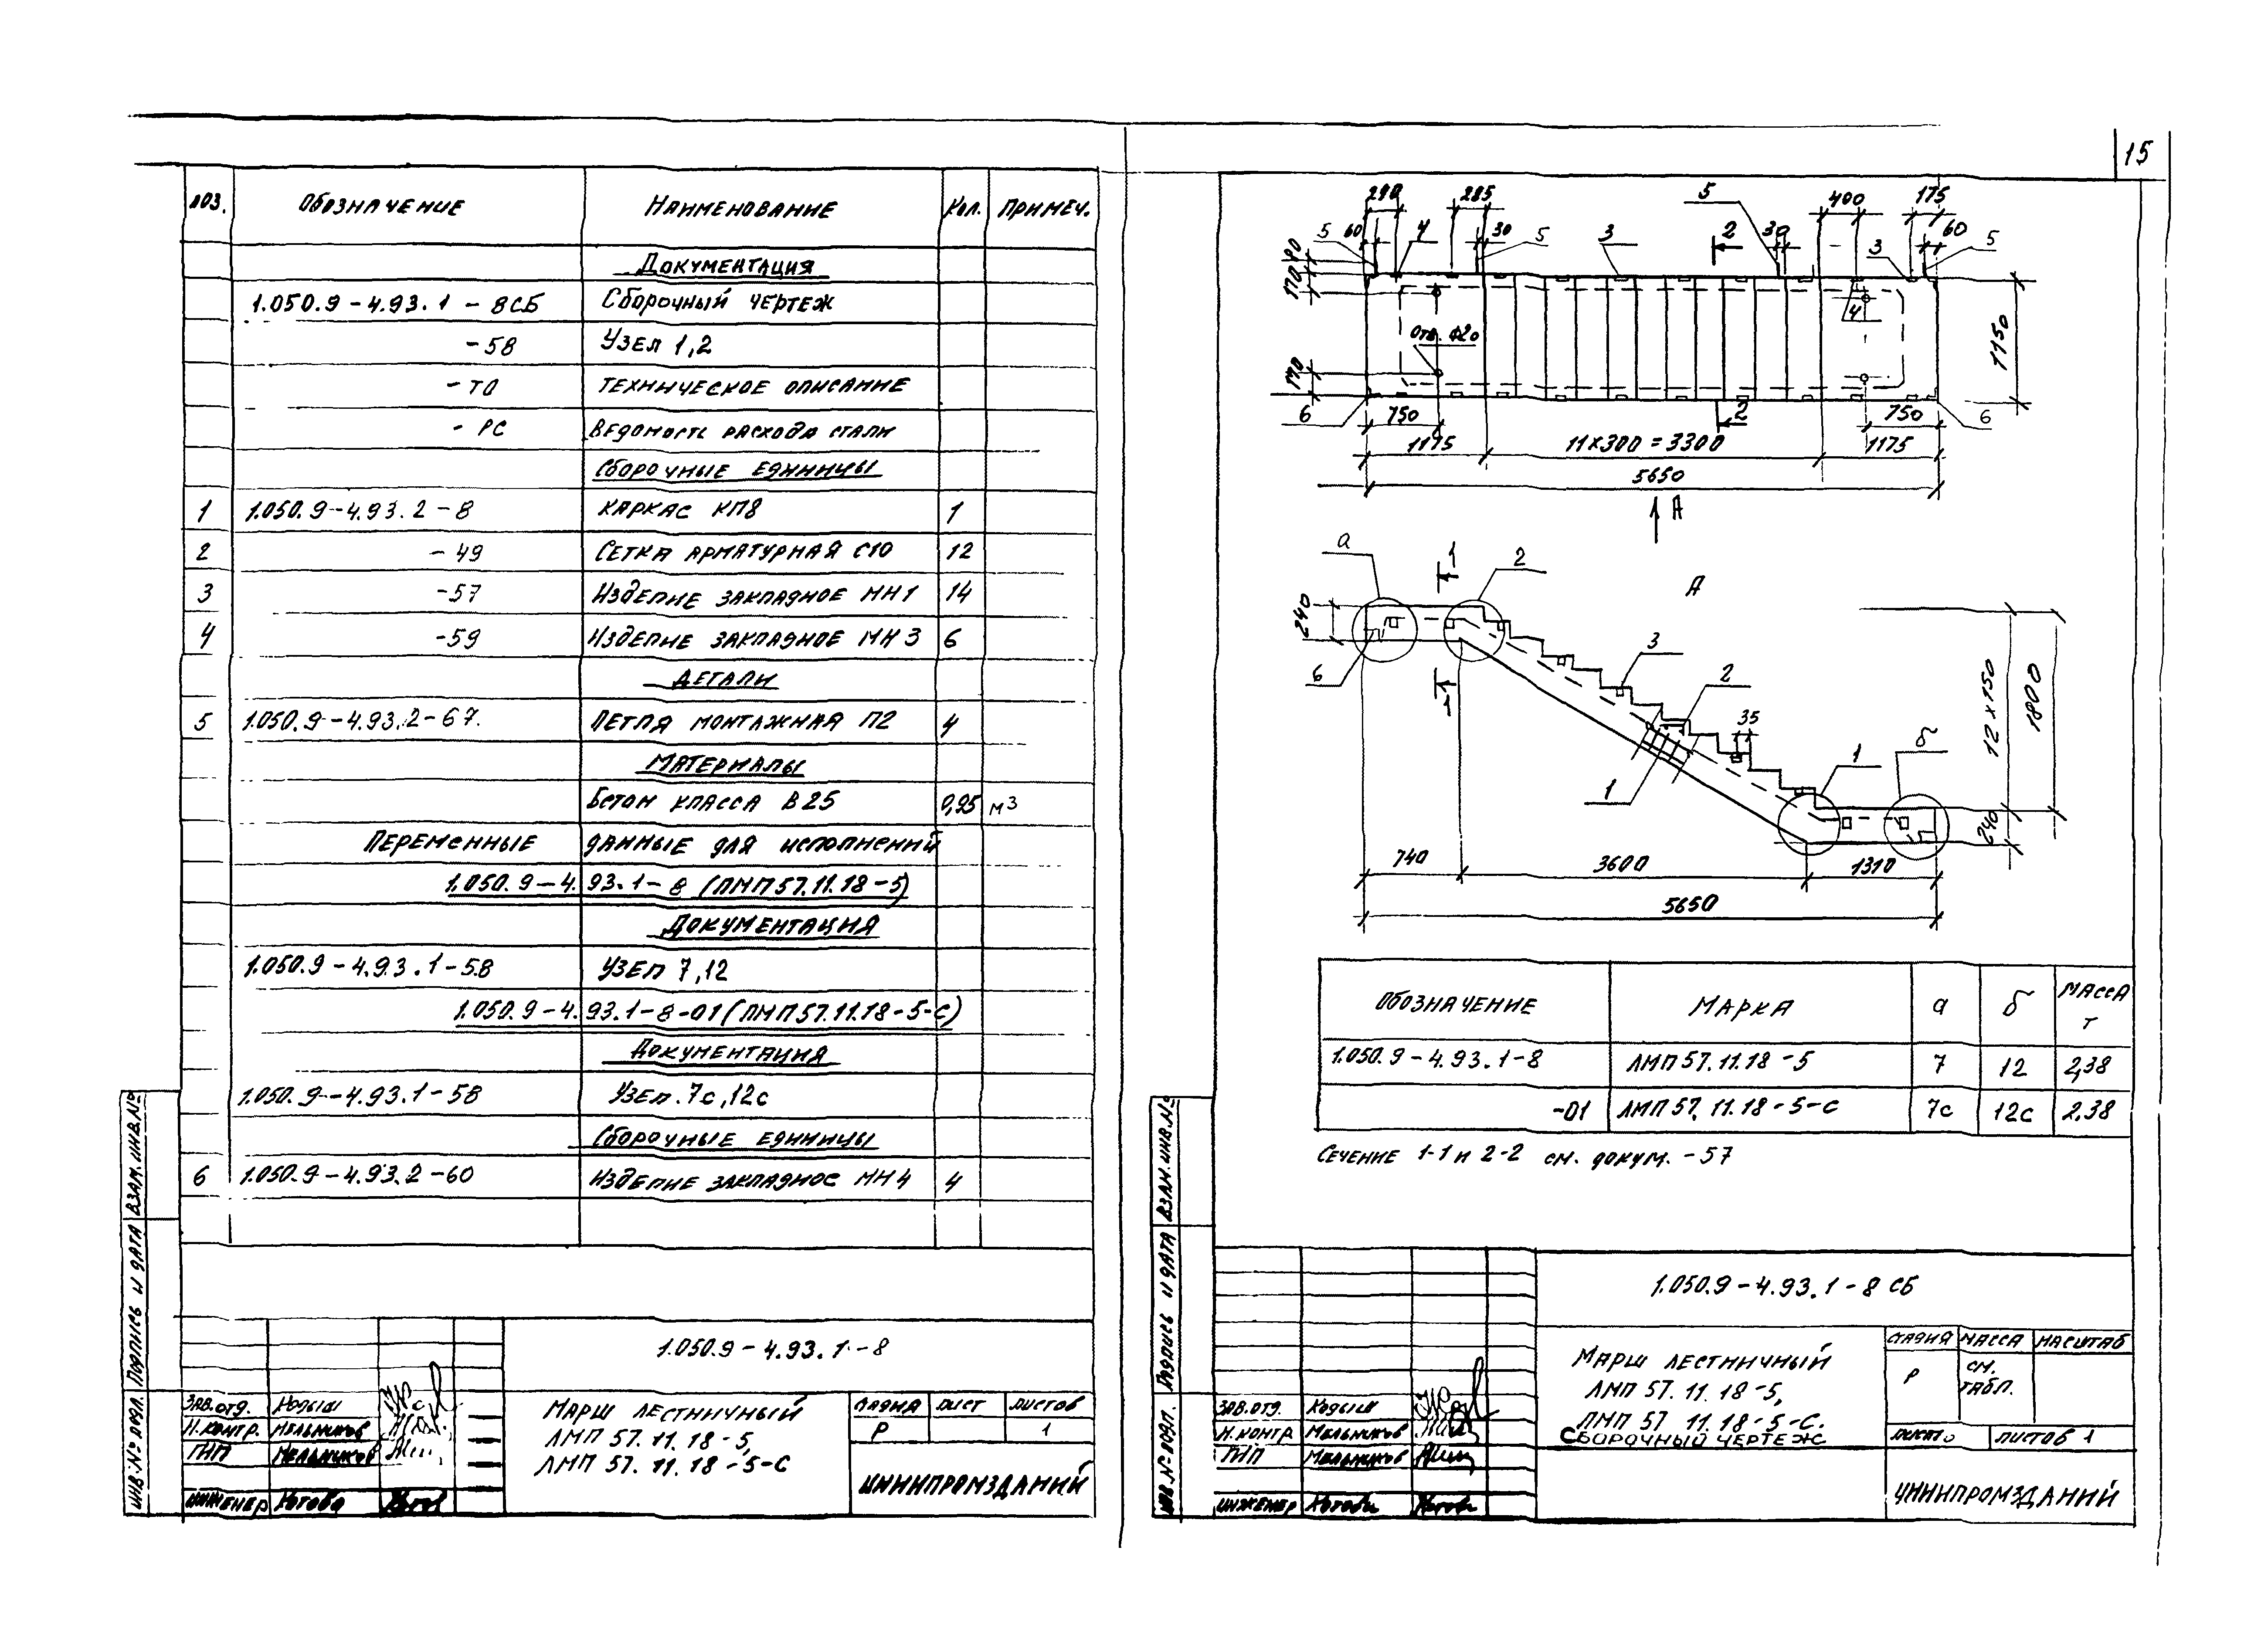 15
ПОЗ. ОБОЗНАЧЕНИЕ НАИМЕНОВАНИЕ КОЛ. ПРИМЕЧ.
ДОКУМЕНТАЦИЯ
1.050.9-4.93.1-8СБ СБОРОЧНЫЙ ЧЕРТЕЖ
-58 УЗЕЛ 1,2
-ТО ТЕХНИЧЕСКОЕ ОПИСАНИЕ
-РС ВЕДОМОСТЬ РАСХОДА СТАЛИ
СБОРОЧНЫЕ ЕДИНИЦЫ
1 1.050.9-4.93.2-8 КАРКАС КП8 1
2 -49 СЕТКА АРМАТУРНАЯ С10 12
3 -57 ИЗДЕЛИЕ ЗАКЛАДНОЕ МН1 14
4 -59 ИЗДЕЛИЕ ЗАКЛАДНОЕ МН3 6
ДЕТАЛИ
5 1.050.9-4.93.2-67. ПЕТЛЯ МОНТАЖНАЯ П2 4
МАТЕРИАЛЫ
БЕТОН КЛАССА В25 0,95 м3
ПЕРЕМЕННЫЕ ДАННЫЕ ДЛЯ ИСПОЛНЕНИЙ
1.050.9-4.93.1-8 (ЛМП57.11.18-5)
ДОКУМЕНТАЦИЯ
1.050.9-4.93.1-58 УЗЕЛ 7,12
1.050.9-4.93.1-8-01 (ЛМП57.11.18-5-С)
ДОКУМЕНТАЦИЯ
1.050.9-4.93.1-58 УЗЕЛ. 7с,12с
СБОРОЧНЫЕ ЕДИНИЦЫ
6 1.050.9-4.93.2-60 ИЗДЕЛИЕ ЗАКЛАДНОЕ МН4 4
ИНВ.№ ПОДЛ. ПОДПИСЬ И ДАТА ВЗАМ.ИНВ.№
1.050.9-4.93.1-8
ЗАВ.ОТД. Кодыш
Н.КОНТР. Мельников
ГИП Мельников
ИНЖЕНЕР Котова
МАРШ ЛЕСТНИЧНЫЙ
ЛМП 57.11.18-5,
ЛМП 57.11.18-5-С
СТАДИЯ ЛИСТ ЛИСТОВ
Р 1
ЦНИИПРОМЗДАНИЙ
290 285 5 400 175
5 60 4 30 5 3 2 30 3 60 5
90
170
Отв. Ф20
4
1150
170
6 750 2 750 6
1175 11×300=3300 1175
5650
А
а 1 2 А
240
6 1 3 2 35 б
12×150
1800
1 1
240
740 3600 1310
5650
ОБОЗНАЧЕНИЕ МАРКА а б МАССА Т
1.050.9-4.93.1-8 ЛМП 57.11.18-5 7 12 2,38
-01 ЛМП 57.11.18-5-С 7с 12с 2,38
СЕЧЕНИЕ 1-1 и 2-2 см. докум. -57
ИНВ.№ ПОДЛ. ПОДПИСЬ И ДАТА ВЗАМ.ИНВ.№
1.050.9-4.93.1-8 СБ
ЗАВ.ОТД. Кодыш
Н.КОНТР Мельников
ГИП Мельников
ИНЖЕНЕР Котова
МАРШ ЛЕСТНИЧНЫЙ
ЛМП 57.11.18-5,
ЛМП 57 11.18-5-С.
СБОРОЧНЫЙ ЧЕРТЕЖ
СТАДИЯ МАССА МАСШТАБ
Р СМ. ТАБЛ.
ЛИСТ ЛИСТОВ 1
ЦНИИПРОМЗДАНИЙ